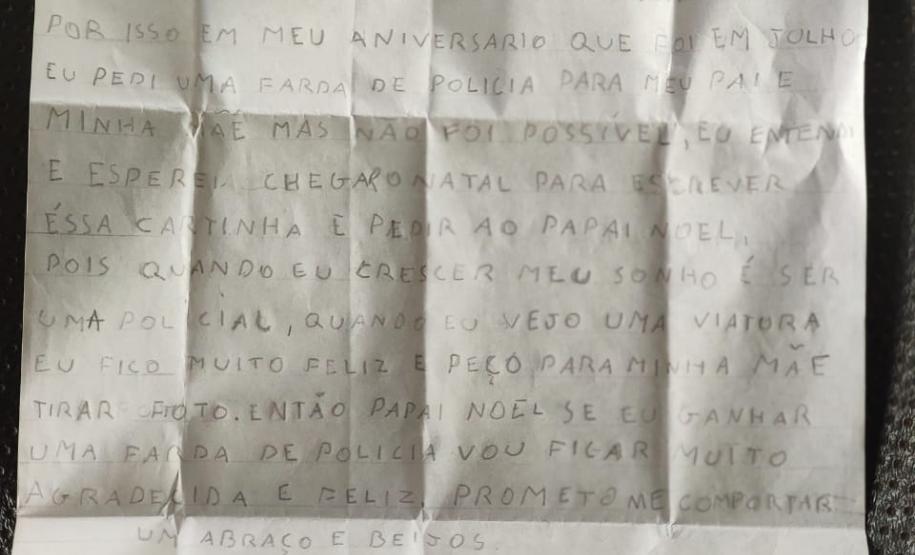 POR ISSO EM MEU ANIVERSARIO QUE FOI EM JULHO
EU PEDI UMA FARDA DE POLICIA PARA MEU PAI E
MINHA MÃE MAS NÃO FOI POSSÍVEL, EU ENTENDI
E ESPEREI CHEGAR O NATAL PARA ESCREVER
ÉSSA CARTINHA E PEDIR AO PAPAI NOEL,
POIS QUANDO EU CRESCER MEU SONHO É SER
UMA POLICIAL, QUANDO EU VEJO UMA VIATURA
EU FICO MUITO FELIZ E PEÇO PARA MINHA MÃE
TIRAR FOTO. ENTÃO PAPAI NOEL SE EU GANHAR
UMA FARDA DE POLICIA VOU FICAR MUITO
AGRADECIDA E FELIZ, PROMETO ME COMPORTAR
UM ABRAÇO E BEIJOS.